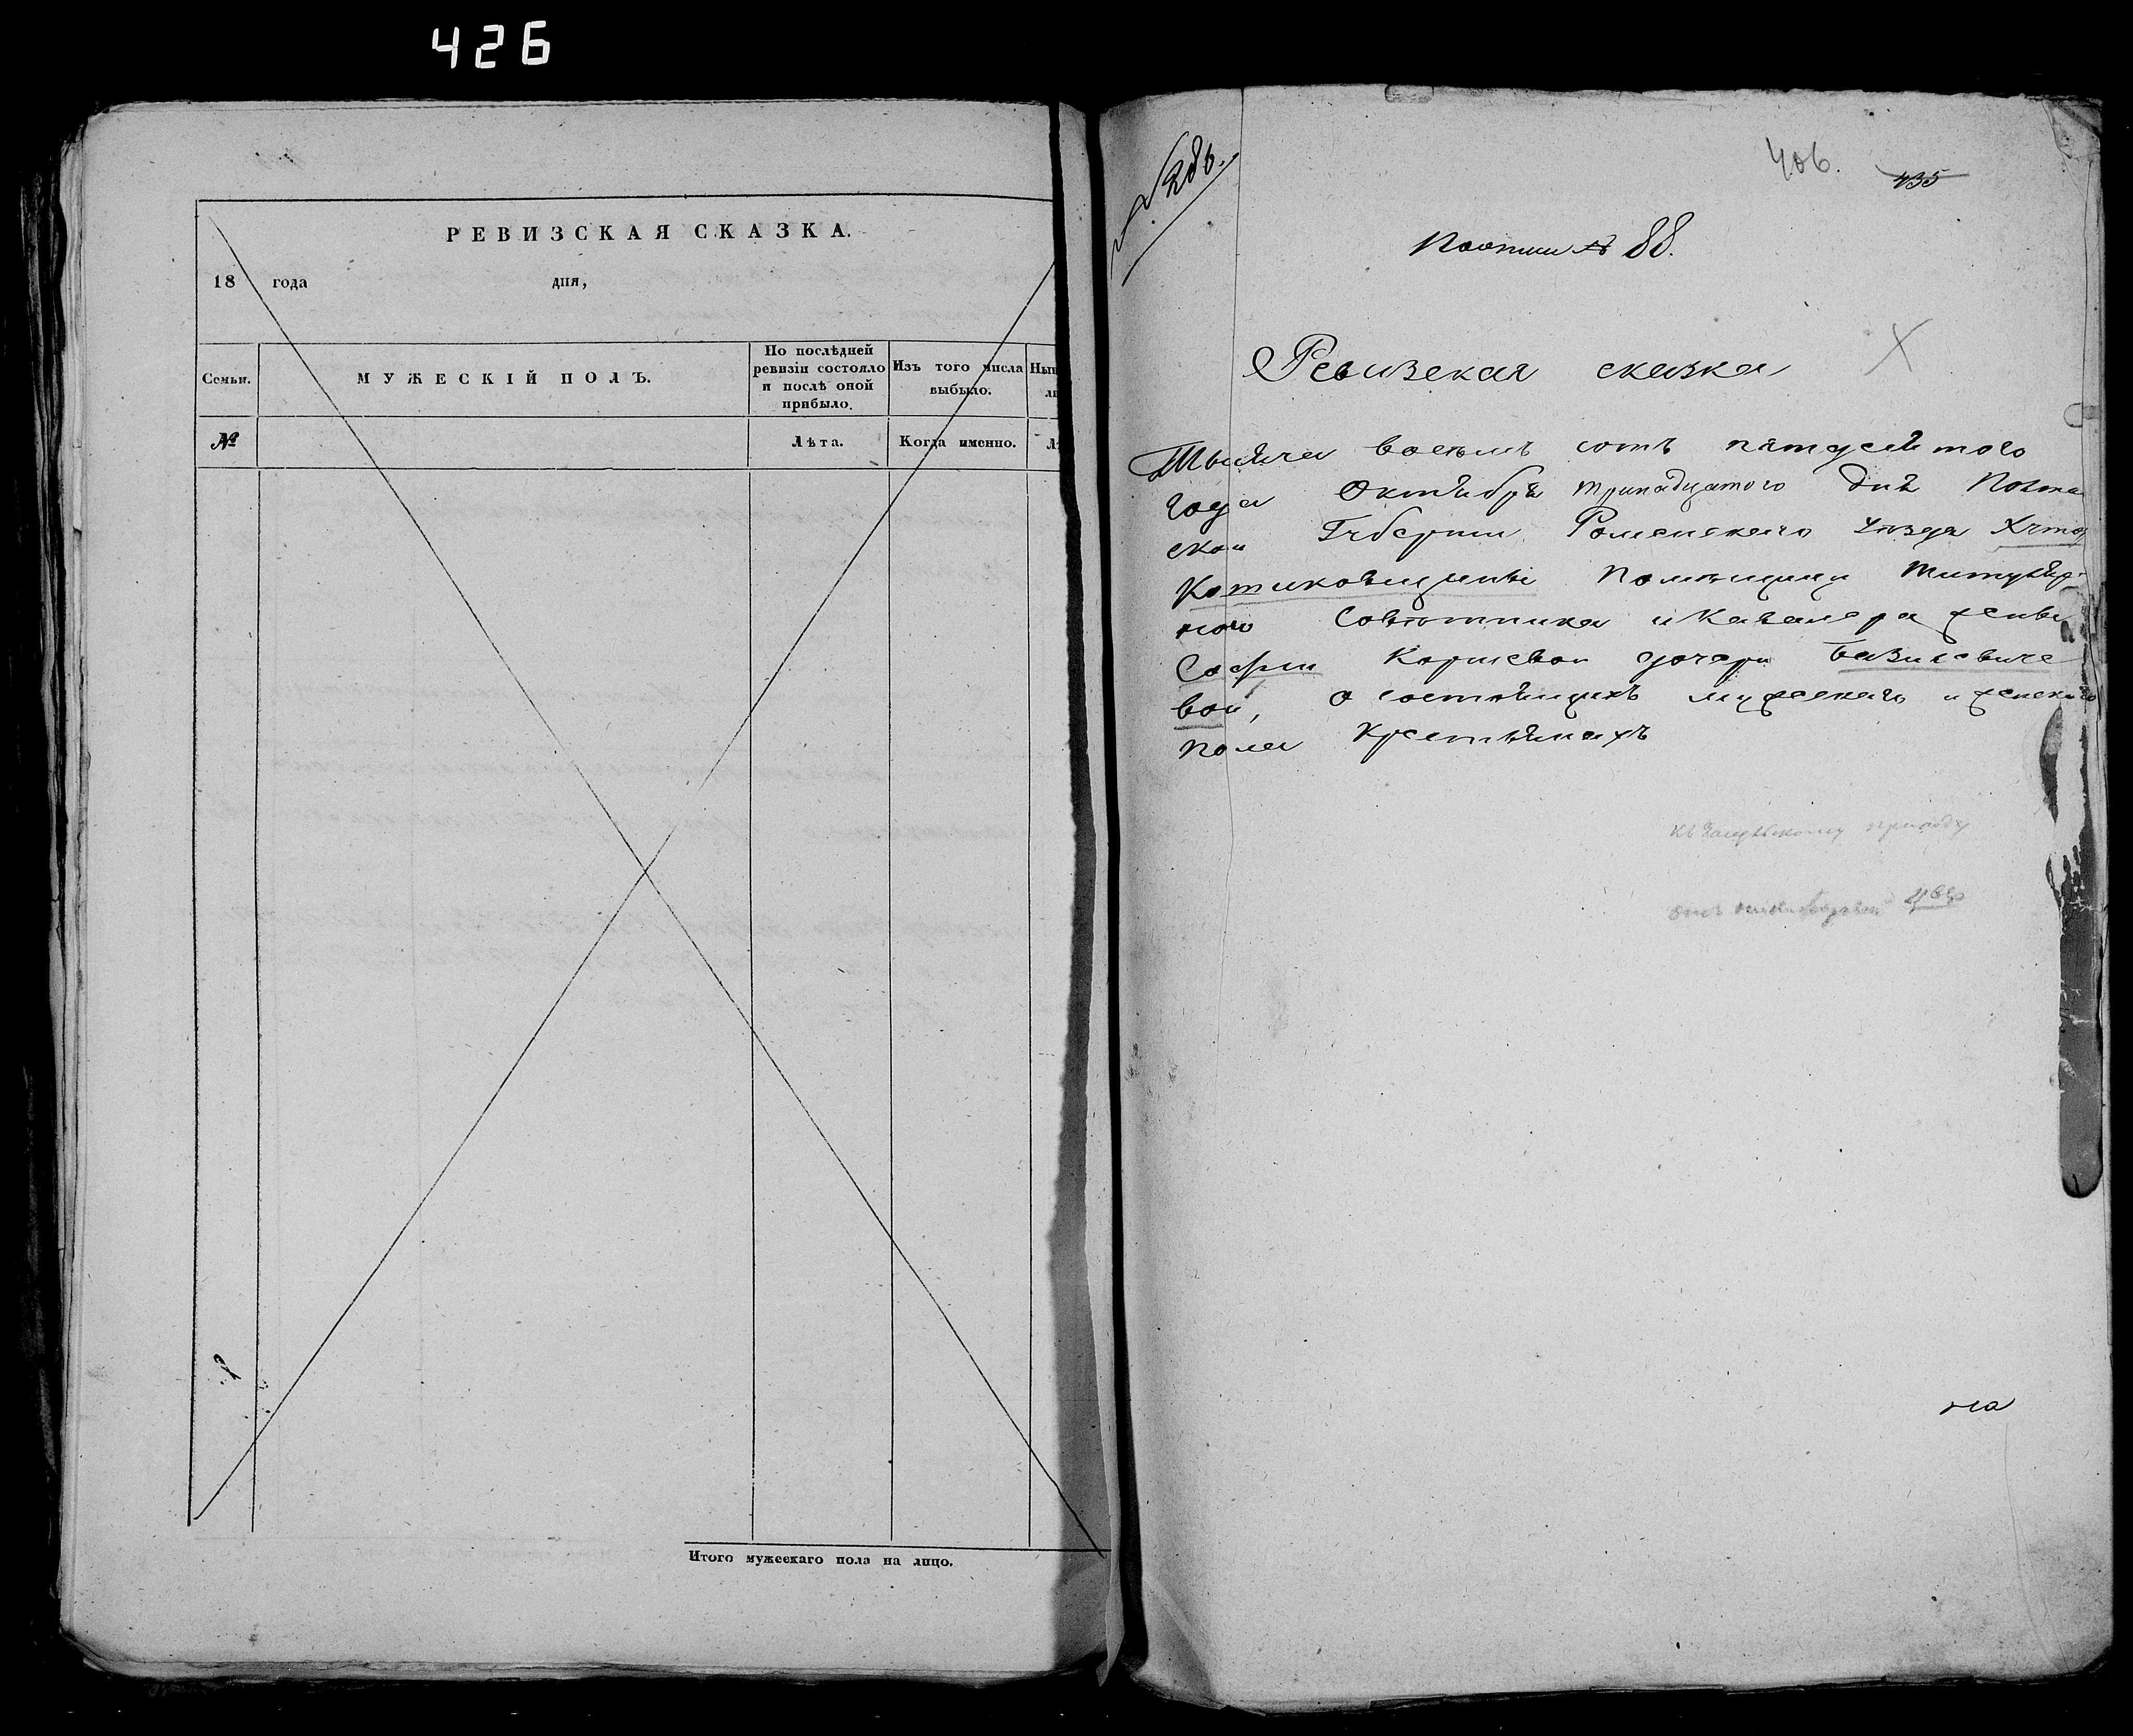 426
РЕВИЗСКАЯ СКАЗКА.
18 года дня,
Семьи.
МУЖЕСКІЙ ПОЛЪ.
По послѣдней ревизіи состояло и послѣ оной прибыло.
Изъ того числа выбыло.
№
Лѣта.
Когда именно.
Итого мужескаго пола на лицо.
406.
435
№ 88.
Ревизская сказка
Тысяча восемь сотъ пятдесятого
года Октября тринадцатого дня Полта
ской Губернии Роменского уезда Хуто
Котиковщины Помѣщицы титуляр
ного Совѣтника и Кавалера жены
Софии Корнѣевой дочери Базилевиче
вой, о состоящихъ мужеского и женского
пола Крестьянахъ
приходу
на